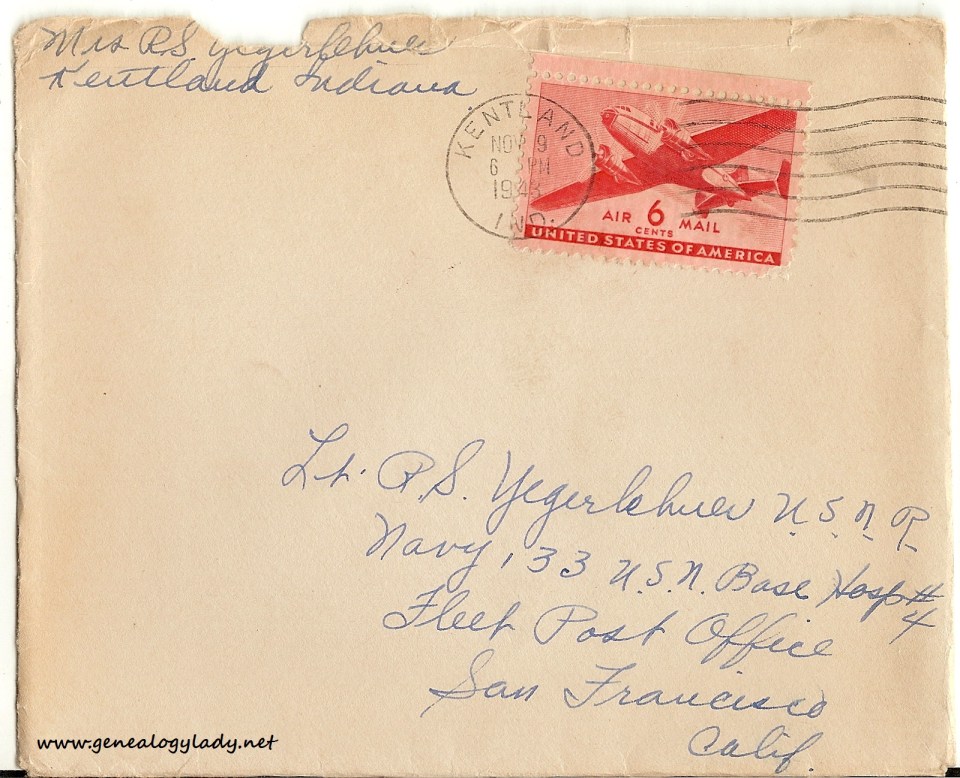 Mrs R S Yegerlehner
Kentland Indiana
KENTLAND
NOV 9
6 PM
1943
IND.
AIR 6 MAIL
CENTS
UNITED STATES OF AMERICA
Lt. R.S. Yegerlehner U.S.N.R.
Navy, 133 U.S.N. Base Hosp #
4
Fleet Post Office
San Francisco
Calif.
www.genealogylady.net